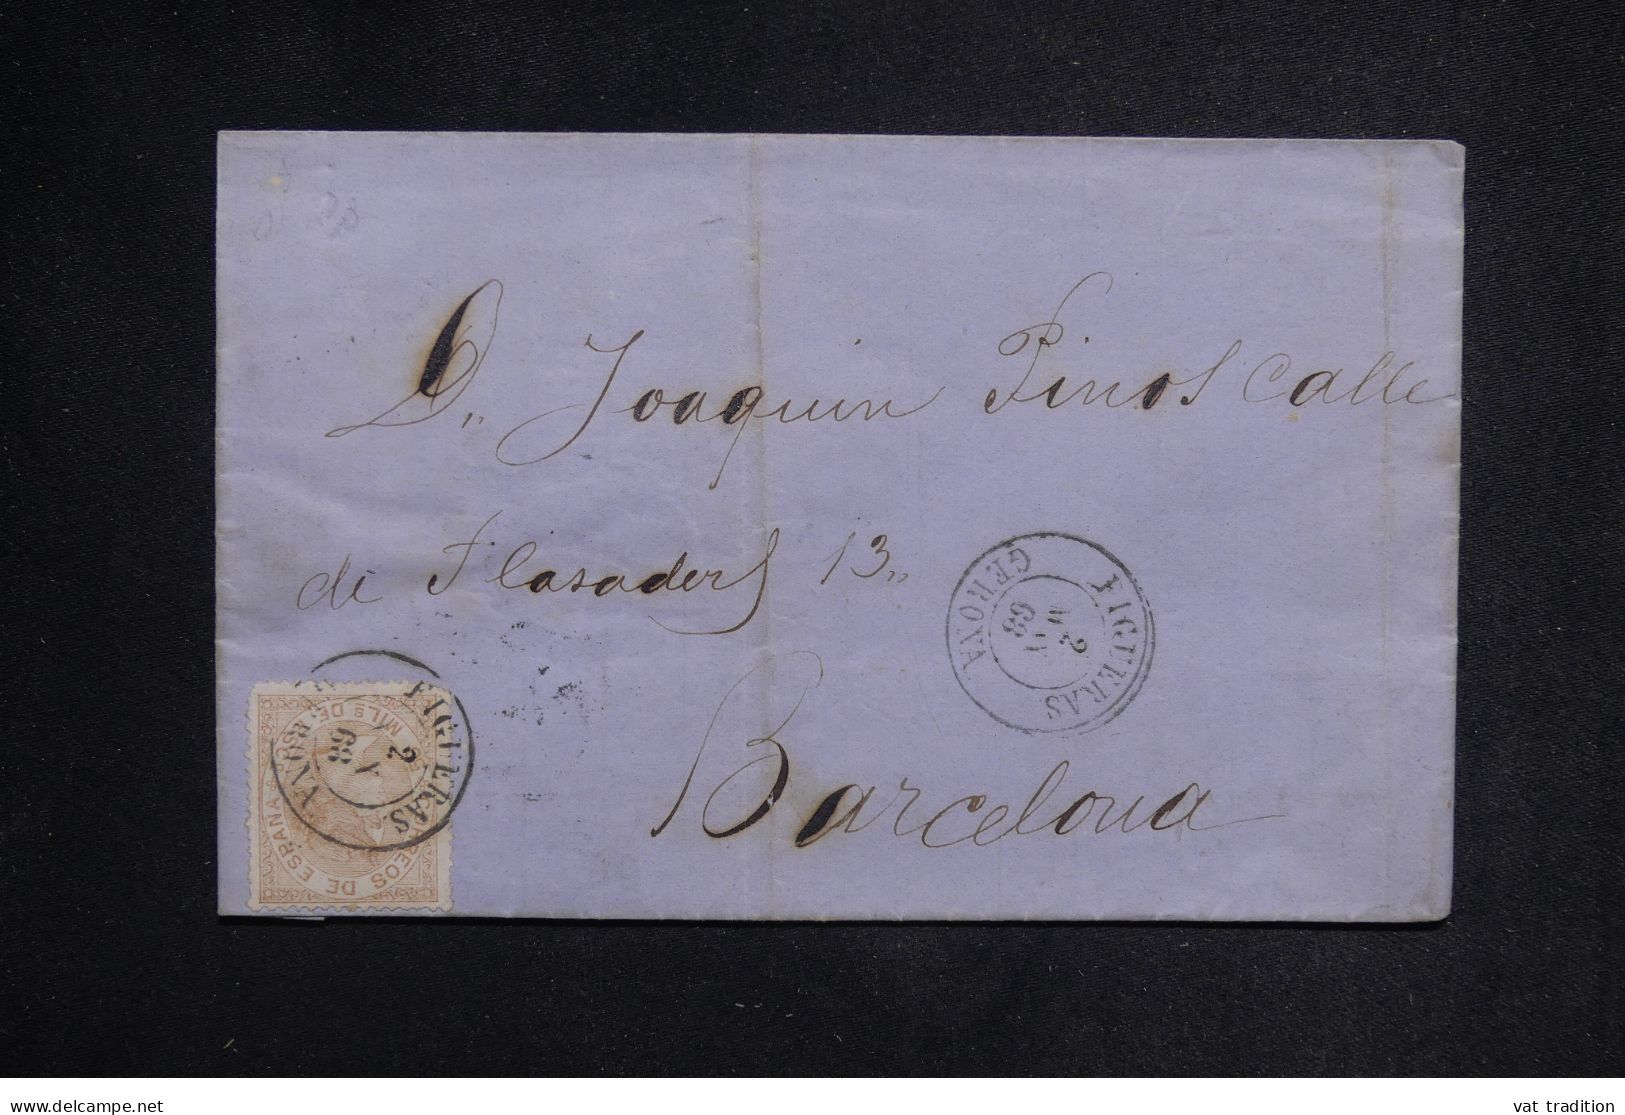 D. Joaquin Pinos Calle
de Flasaders 13
Barcelona
FIGUERAS
2
68
GERONA
FIGUERAS
2
68
GERONA
CORREOS DE ESPAÑA
MILS DE
www.delcampe.net
vat tradition